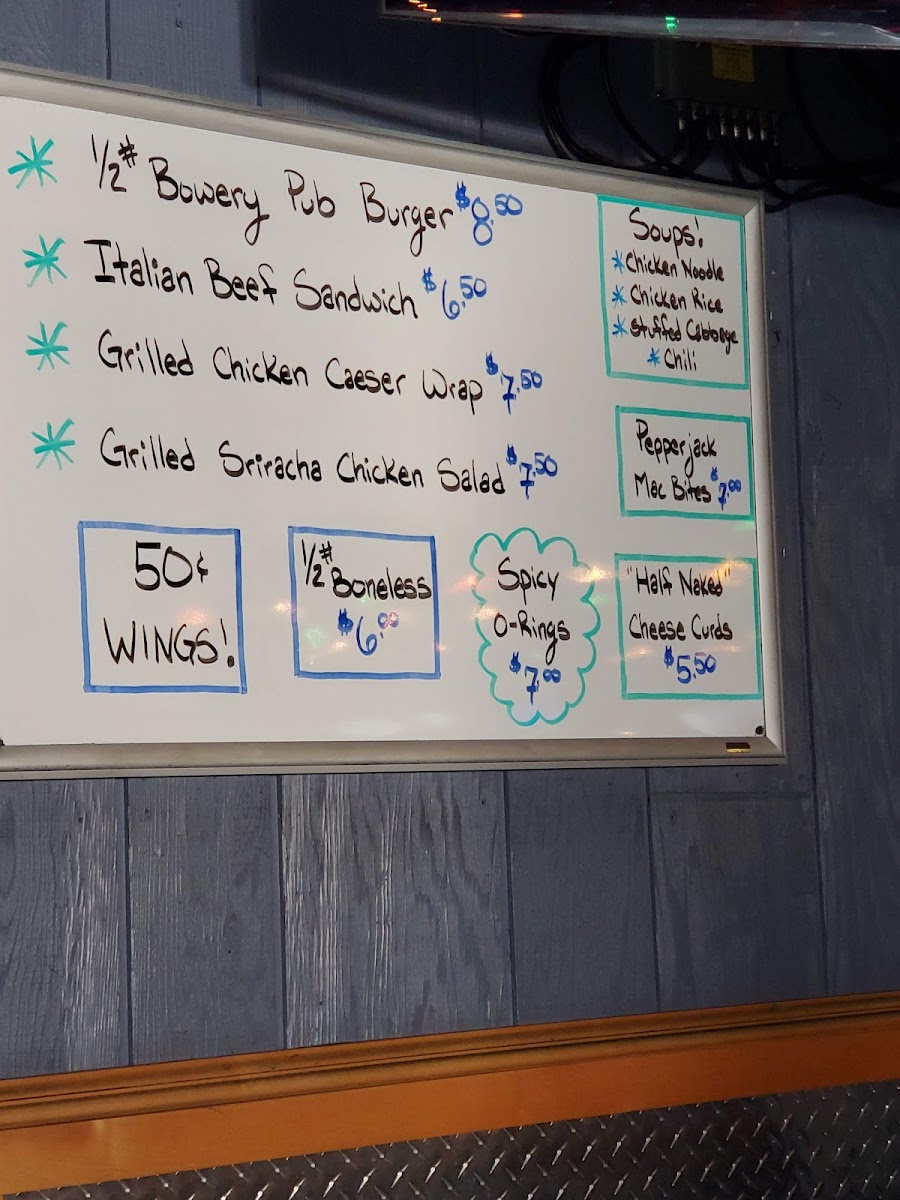 1/2# Bowery Pub Burger $8.50
Italian Beef Sandwich $6.50
Grilled Chicken Caeser Wrap $7.50
Grilled Sriracha Chicken Salad $7.50
Soups!
Chicken Noodle
Chicken Rice
Stuffed Cabbage
Chili
Pepperjack
Mac Bites $7.00
50¢
WINGS!
1/2# Boneless
$6.00
Spicy
O-Rings
$7.00
"Half Naked"
Cheese Curds
$5.50